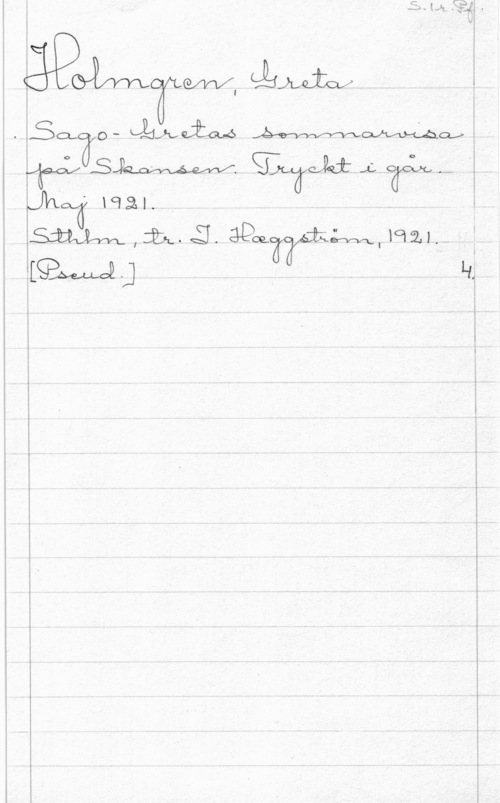 S. l. r. Pf.
Holmgren, Greta
Sago-Gretas sommarvisa
på Skansen. Tryckt i går.
Maj 1921.
Sthlm, tr. I. Hæggström, 1921.
[Pseud.] 4.